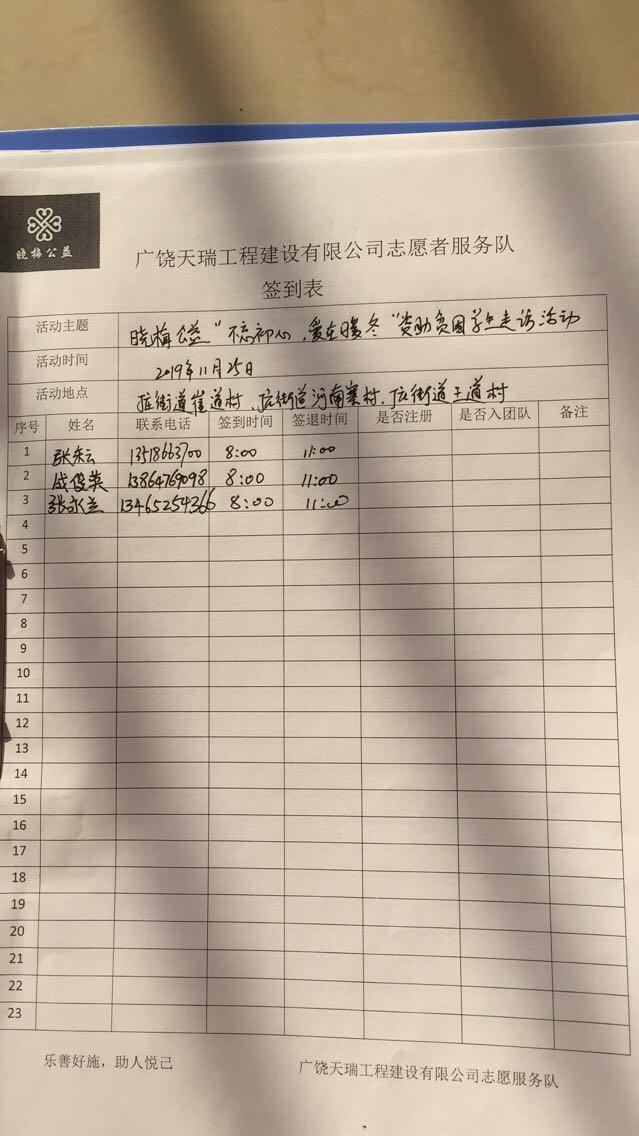 晓梅公益
广饶天瑞工程建设有限公司志愿者服务队
签到表
活动主题 晓梅公益"不忘初心,爱在暖冬"资助贫困学生走访活动
活动时间 2019年11月25日
活动地点 街道崔道村、街道河南寨村、街道王道村
序号 姓名 联系电话 签到时间 签退时间 是否注册 是否入团队 备注
1 张云 13518663700 8:00 11:00
2 成俊英 13864769098 8:00 11:00
3 张兰 13465254366 8:00 11:00
4
5
6
7
8
9
10
11
12
13
14
15
16
17
18
19
20
21
22
23
乐善好施，助人悦己 广饶天瑞工程建设有限公司志愿服务队